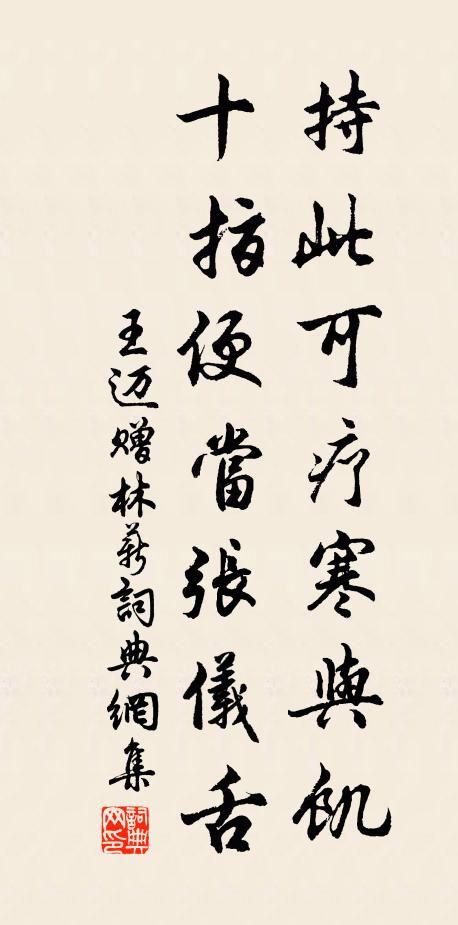 持此可疗寒與飢
十指便當張儀舌
王迈赠林薪詞典網集
詞典网印